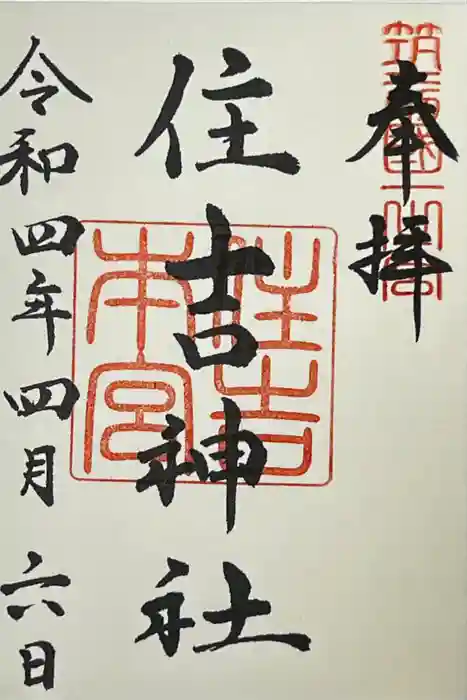 奉拝
筑前國一之宮
住吉神社
住吉本宮
令和四年四月六日